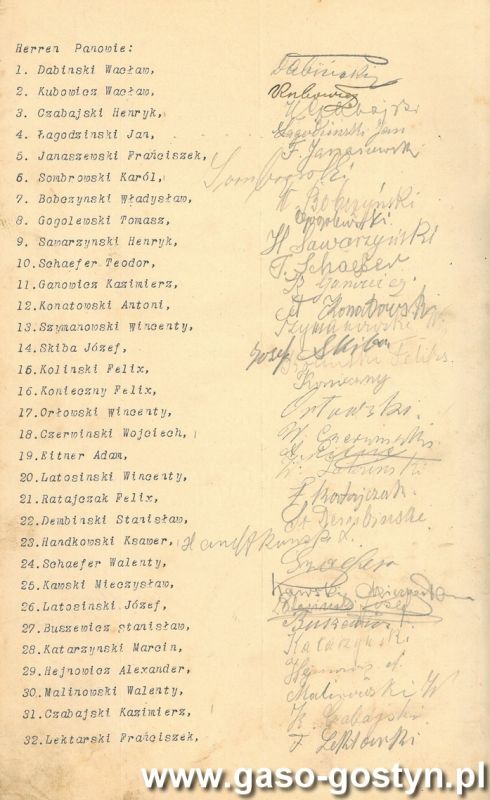 Herren Panowie:
1. Dabinski Wacław, Dabiński
2. Kubowicz Wacław, Kubowicz
3. Czabajski Henryk, H Czabajski
4. Łagodzinski Jan, Łagodziński Jan
5. Janaszewski Frańciszek, F Janaszewski
6. Sombrowski Karól, Sombrowski
7. Bobczynski Władysław, W Bobczyński
8. Gogolewski Tomasz, Gogolewski.
9. Sawarzynski Henryk, H Sawarzyński
10. Schaefer Teodor, T. Schaefer
11. Ganowicz Kazimierz, Ganowicz
12. Konatowski Antoni, A Konatowski
13. Szymanowski Wincenty, Szymanowski W.
14. Skiba Józef, Jozef Skiba
15. Kolinski Felix, Feliks.
16. Konieczny Felix, Konieczny
17. Orłowski Wincenty, Orłowski.
18. Czerwinski Wojciech, W. Czerwiński.
19. Eitner Adam,
20. Latosinski Wincenty, W. Latosinski
21. Ratajczak Felix, F Ratajczak.
22. Dembinski Stanisław, St Dembinski
23. Handkowski Ksawer,
24. Schaefer Walenty,
25. Kawski Mieczysław, Kawski Mieczysław
26. Latosinski Józef, Józef
27. Buszewicz stanisław,
28. Katarzynski Marcin, Katarzyński
29. Hejnowicz Alexander,
30. Malinowski Walenty, Malinowski W
31. Czabajski Kazimierz, K Czabajski.
32. Lektarski Frańciszek, F Lektarski
www.gaso-gostyn.pl